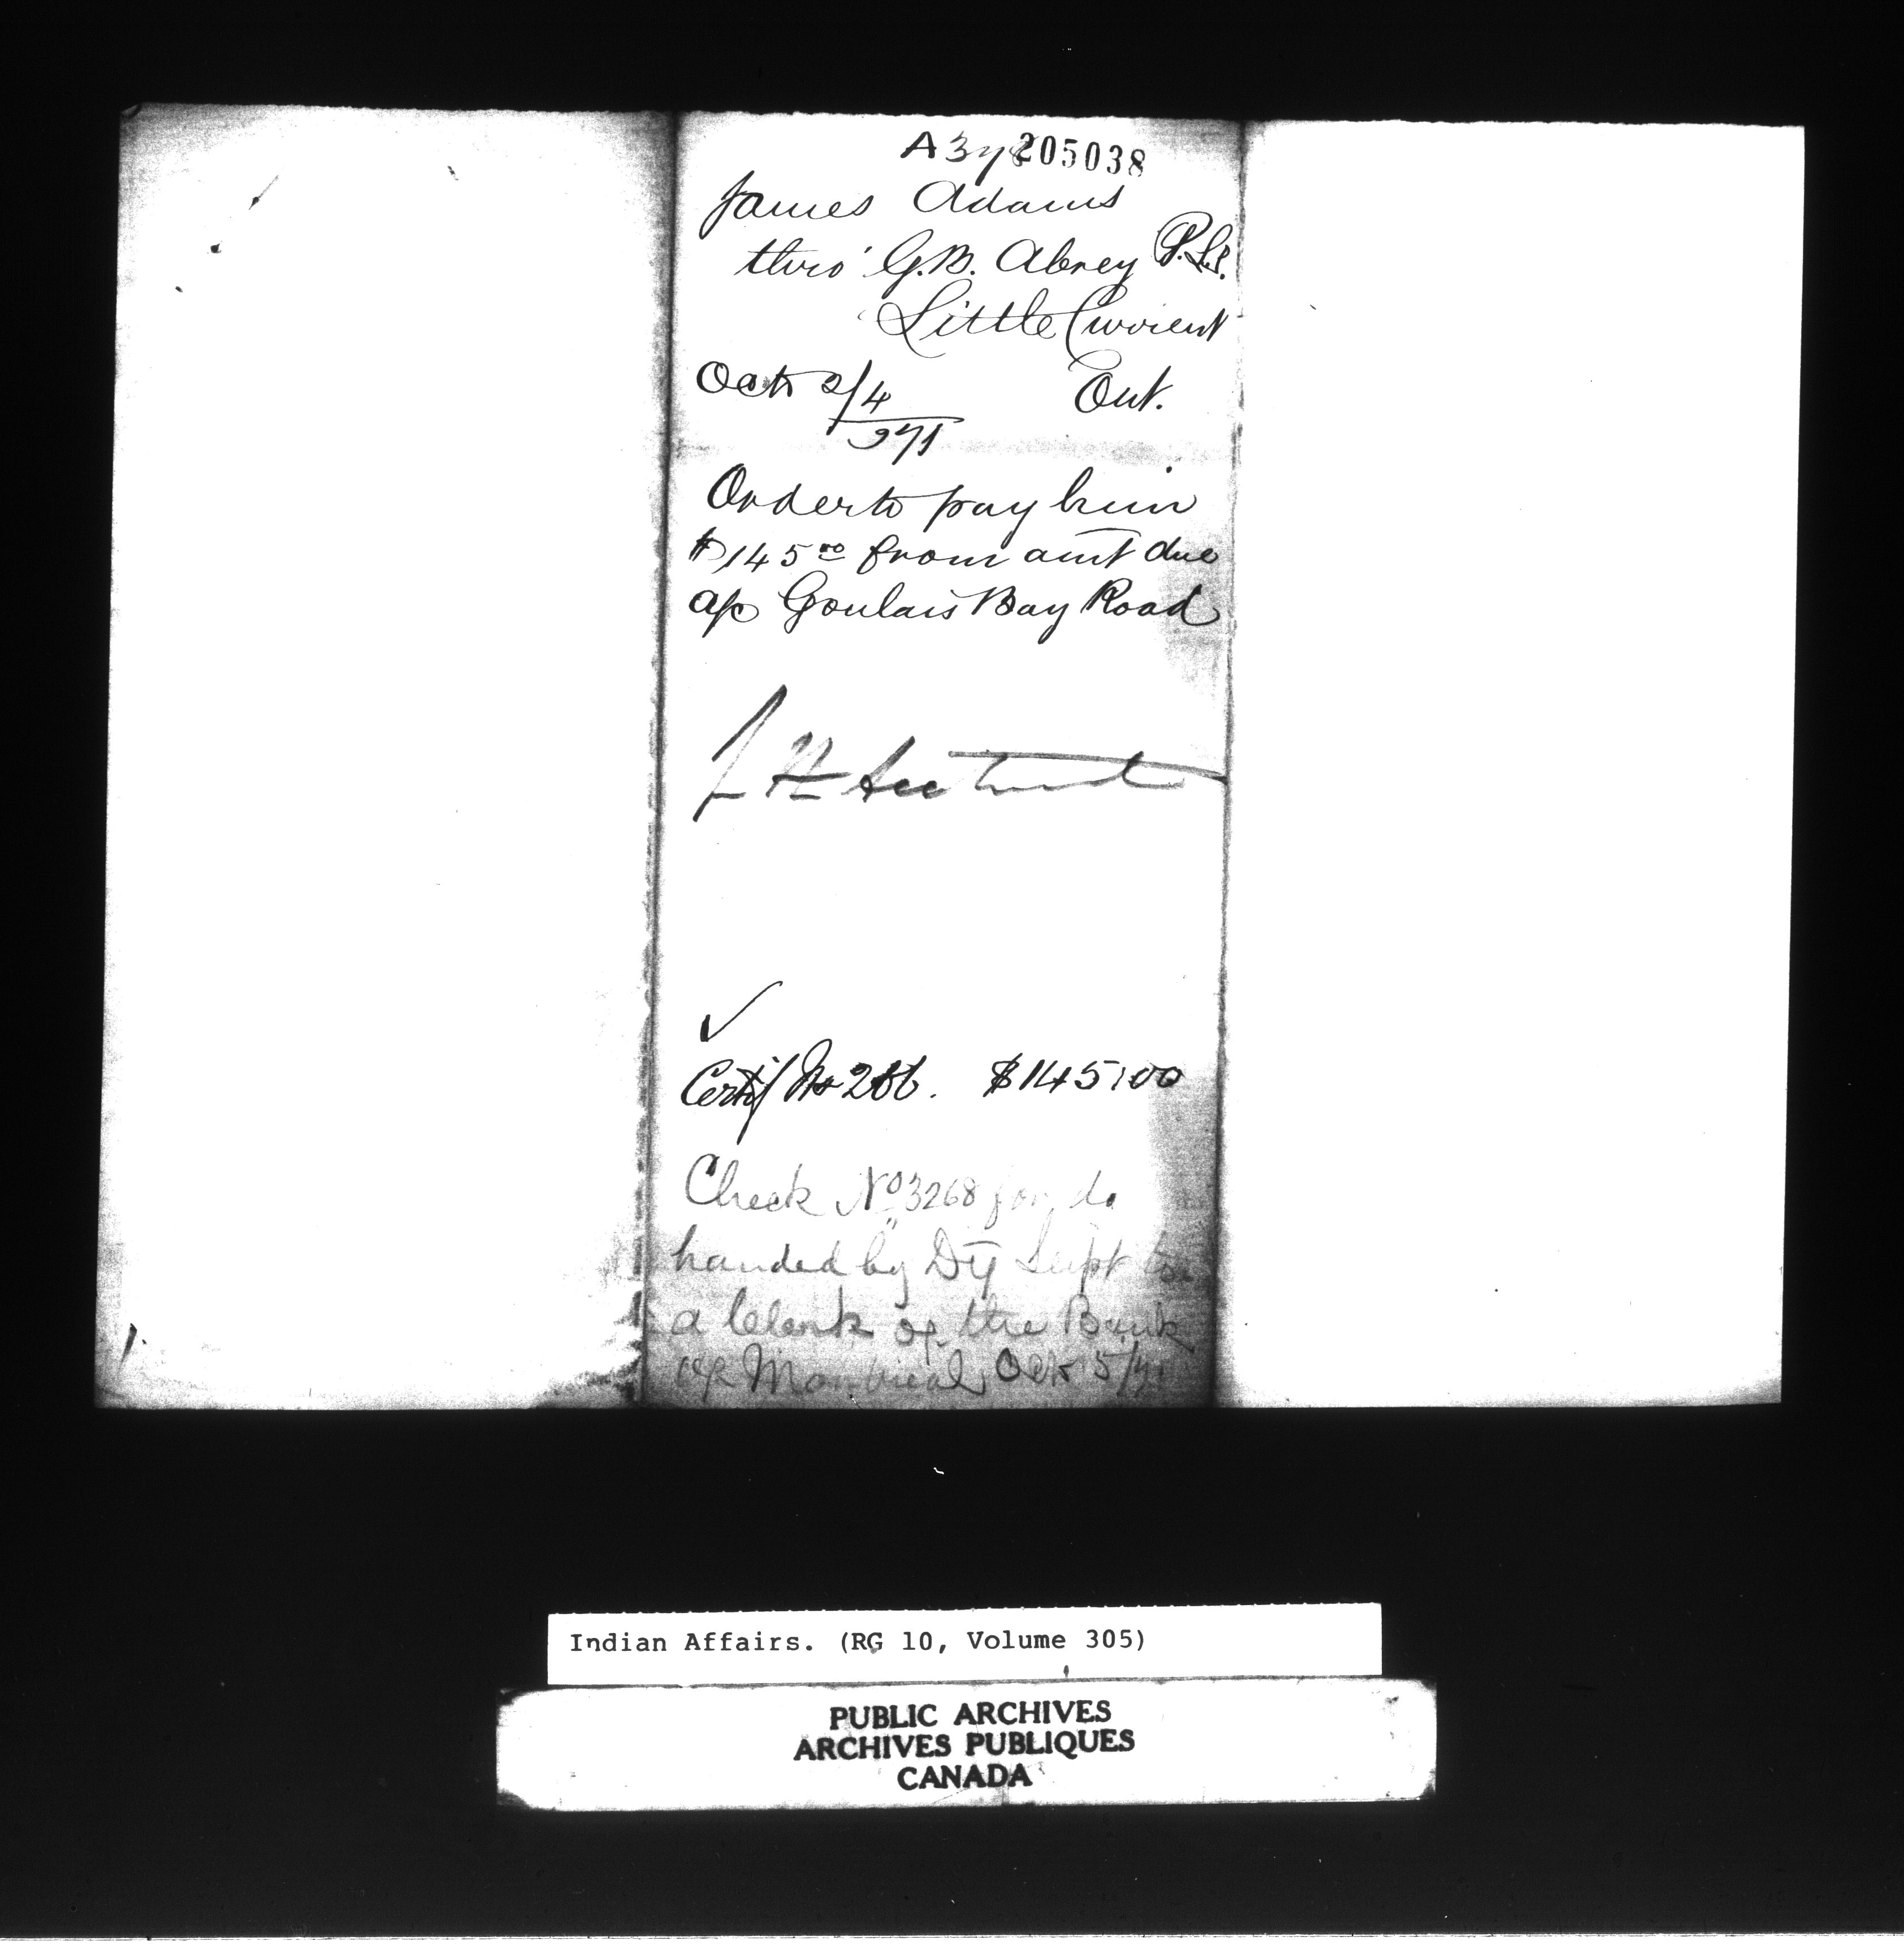 A 37 205038
James Adams
thro' G.B. Abrey P.L.S.
Little Current
Octr 2/4 Ont.
71
Order to pay him
$145.00 from amt due
a/c Goulais Bay Road
Certif No 266. $145.00
Check No 3268 for do
handed by Dty Supt to
a Clerk of the Bank
of Montreal Octr 5/71
Indian Affairs. (RG 10, Volume 305)
PUBLIC ARCHIVES
ARCHIVES PUBLIQUES
CANADA